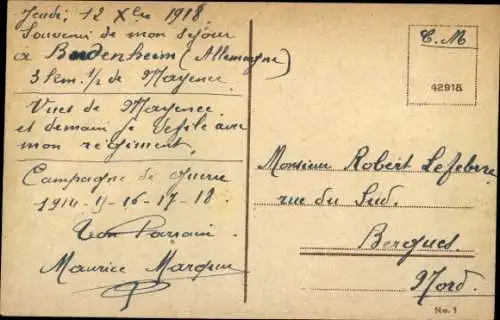 Jeudi, 12 Xbre 1918
Souvenir de mon séjour
à Budenheim (Allemagne)
3 km. 1/2 de Mayence
Vues de Mayence
et demain je défile avec
mon régiment.
Campagne de guerre
1914-15-16-17-18
Ton Parrain
Maurice
C. M
42918
Monsieur Robert Lefebvre
rue du Sud.
Bergues.
Nord.
No. 1